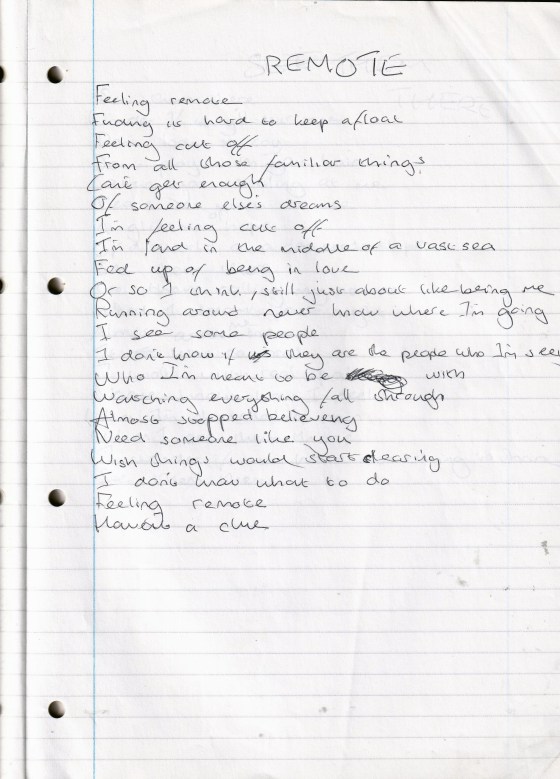 REMOTE
Feeling remote
Finding it hard to keep afloat
Feeling cut off
From all those familiar things
Can't get enough
Of someone else's dreams
I'm feeling cut off
I'm land in the middle of a vast sea
Fed up of being in love
Or so I think, still just about like being me
Running around never know where I'm going
I see some people
I don't know if they are the people who I'm see
Who I'm meant to be with
Watching everything fall through
Almost stopped believing
Need someone like you
Wish things would start clearing
I don't know what to do
Feeling remote
Haven't a clue